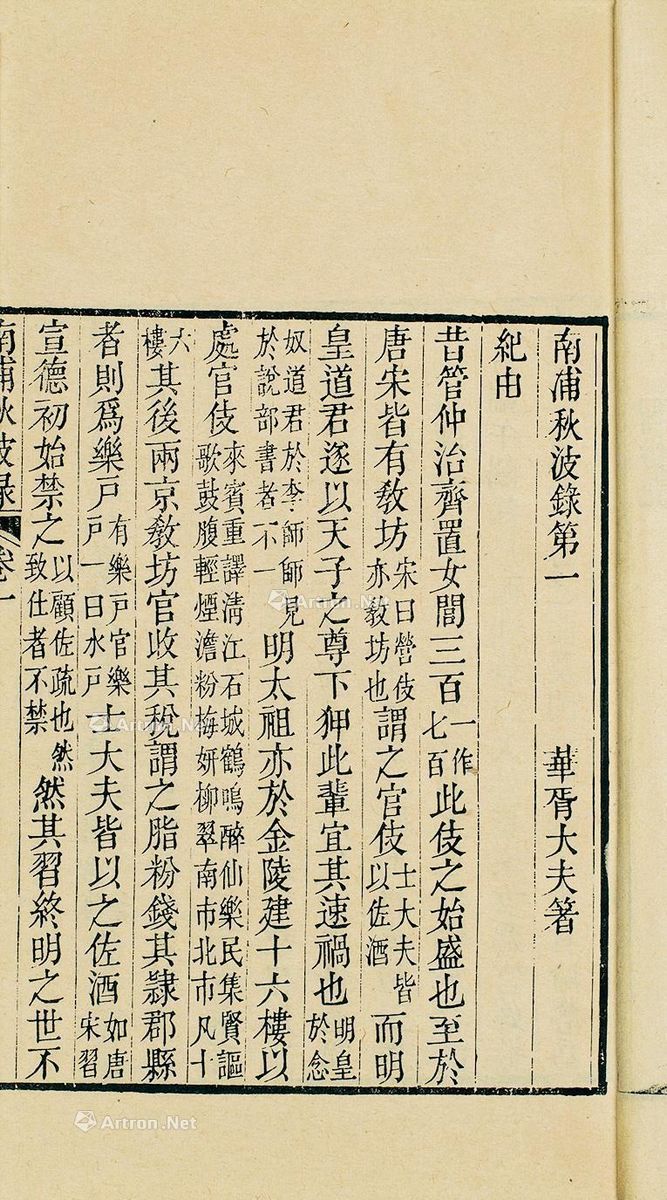 南浦秋波錄第一 華胥大夫箸
紀由
昔管仲治齊置女閭三百一作七百此伎之始盛也至於
唐宋皆有敎坊宋曰營伎亦敎坊也謂之官伎士大夫皆以佐酒而明
皇道君遂以天子之尊下狎此輩宜其速禍也明皇於念
奴道君於李師師見於說部書者不一明太祖亦於金陵建十六樓以
處官伎來賓重譯淸江石城鶴鳴醉仙樂民集賢謳歌鼓腹輕煙澹粉梅妍柳翠南市北市凡十
六樓其後兩京敎坊官收其稅謂之脂粉錢其隷郡縣
者則爲樂戶有樂戶官樂戶一曰水戶士大夫皆以之佐酒如唐宋習
宣德初始禁之以顧佐疏也然致仕者不禁然其習終明之世不
南浦秋波錄 卷一
Artron.Net
Artron.Net
Artron.Net
Artron.Net